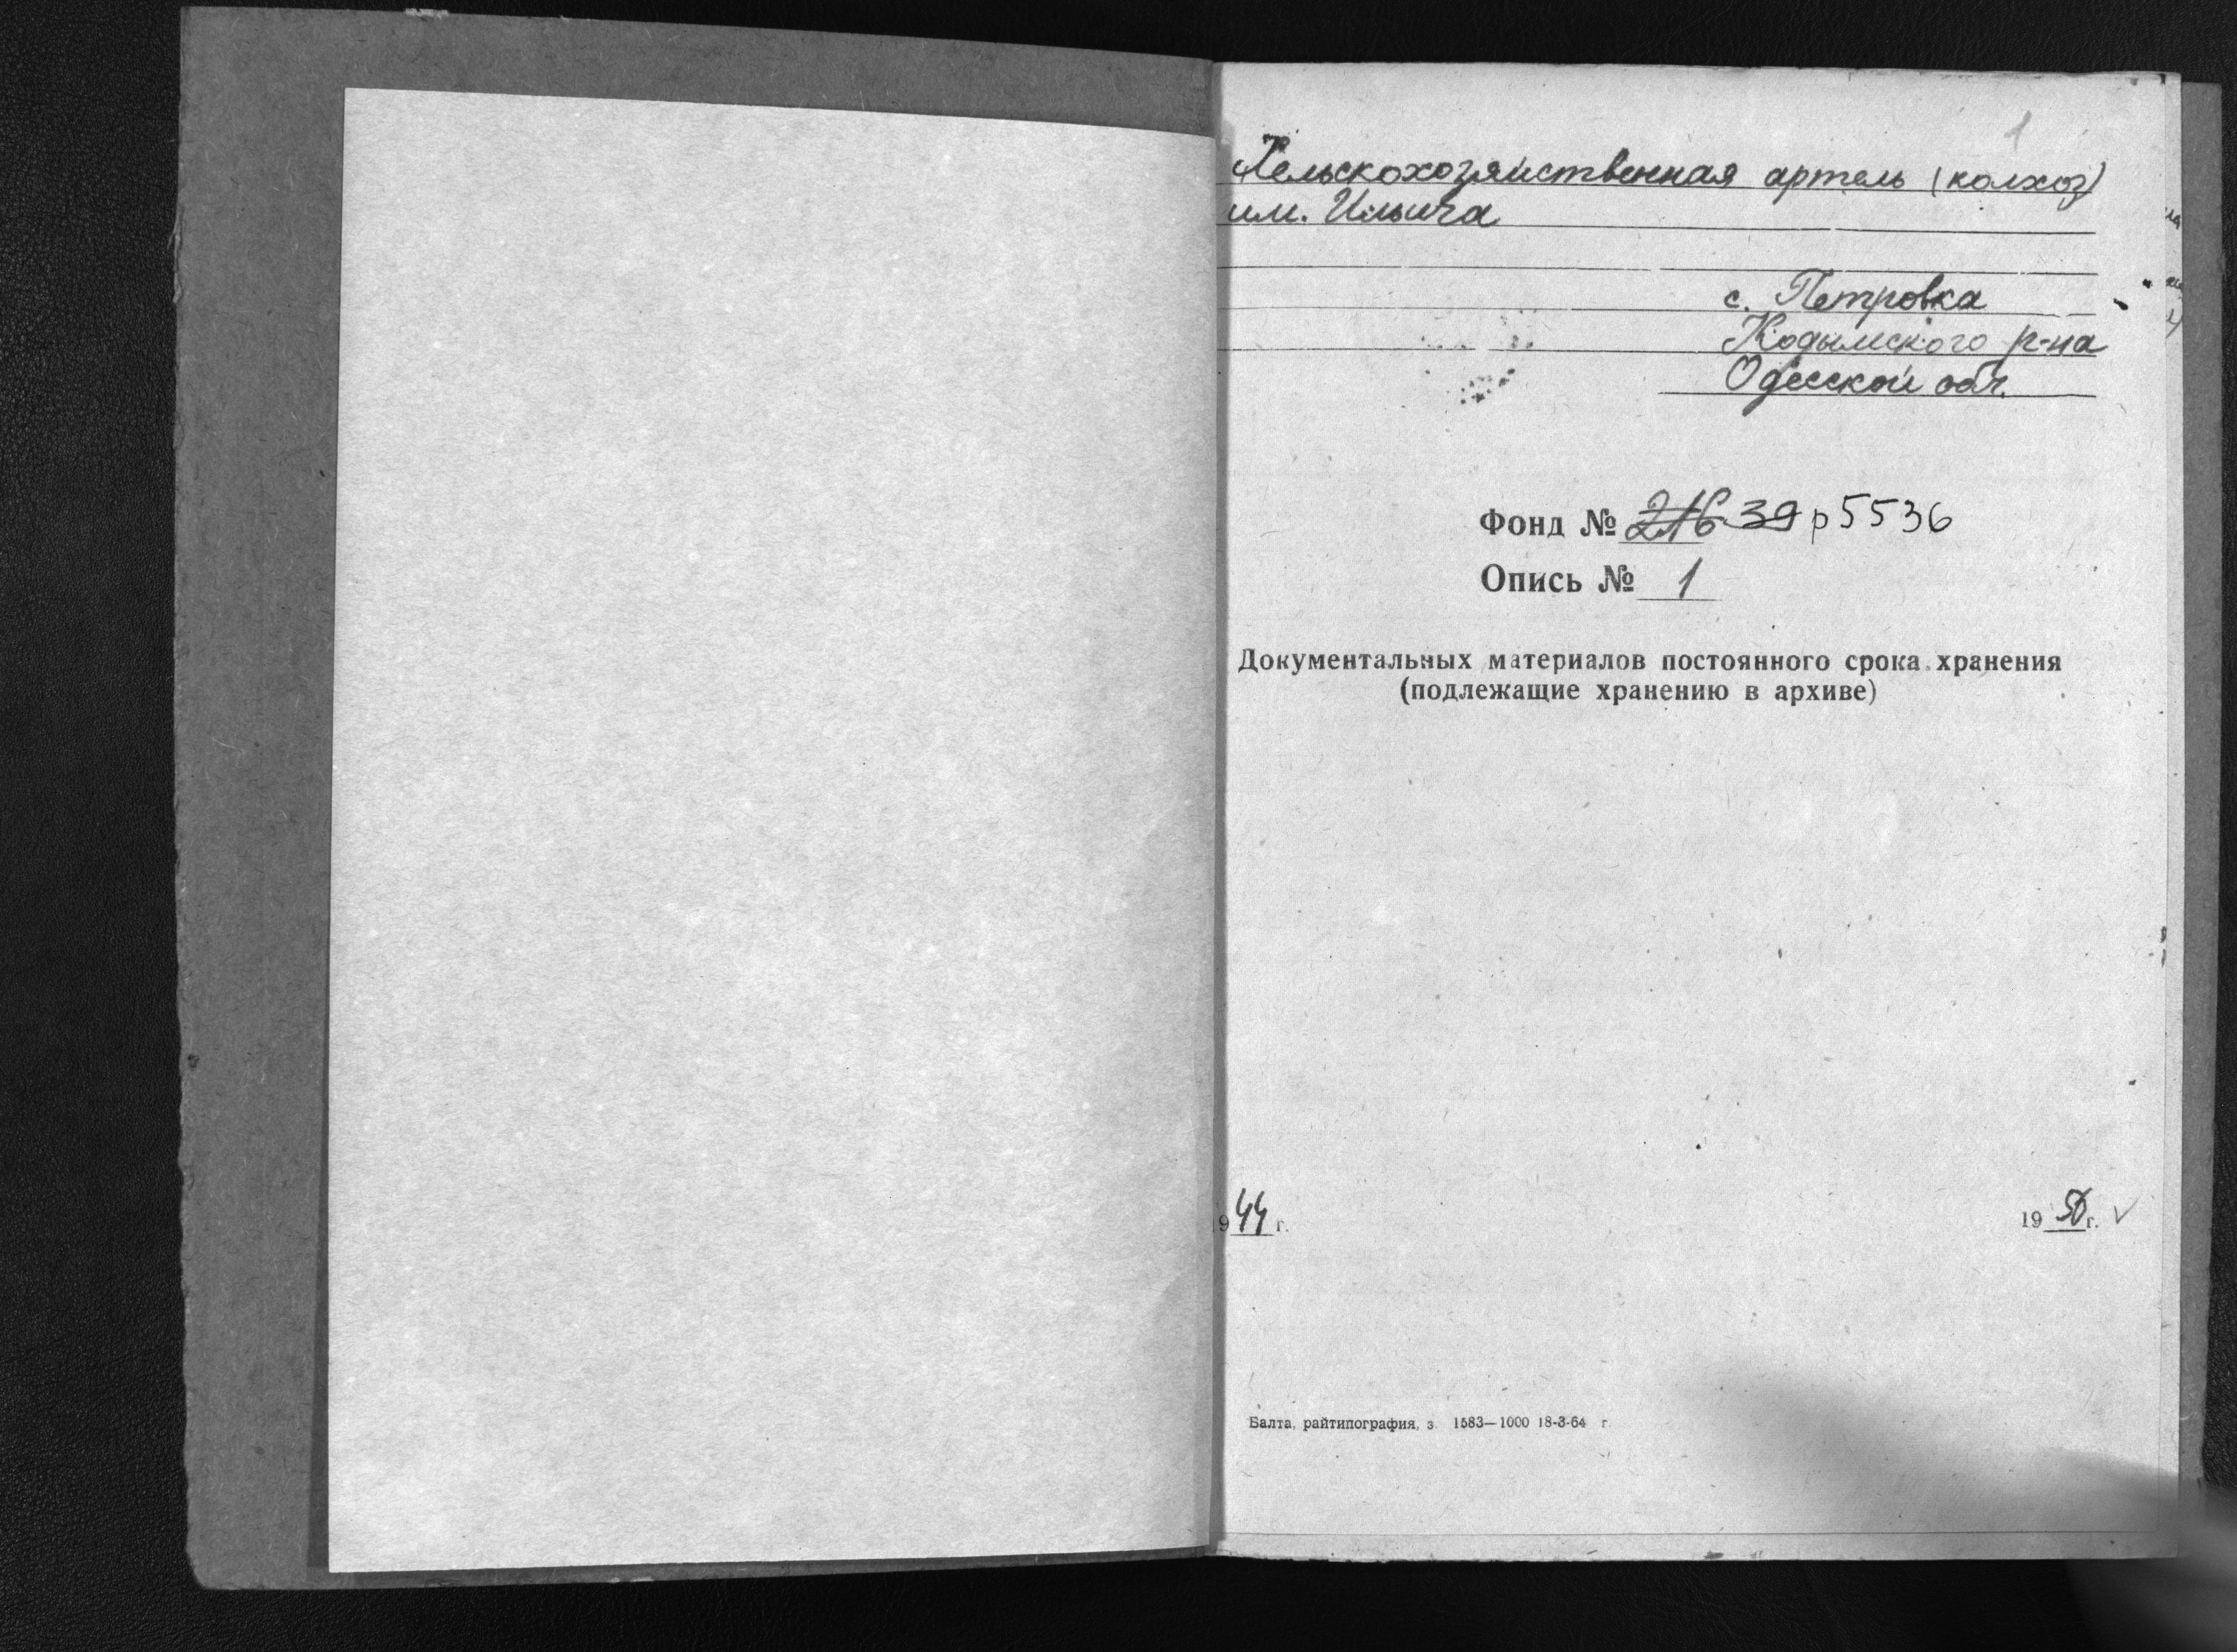 1
Сельскохозяйственная артель (колхоз)
им. Ильича
с. Петровка
Кодымского р-на
Одесской обл.
Фонд № 216 39 р5536
Опись № 1
Документальных материалов постоянного срока хранения
(подлежащие хранению в архиве)
1944 г. 1950 г.
Балта, райтипография, з. 1583—1000 18-3-64 г.